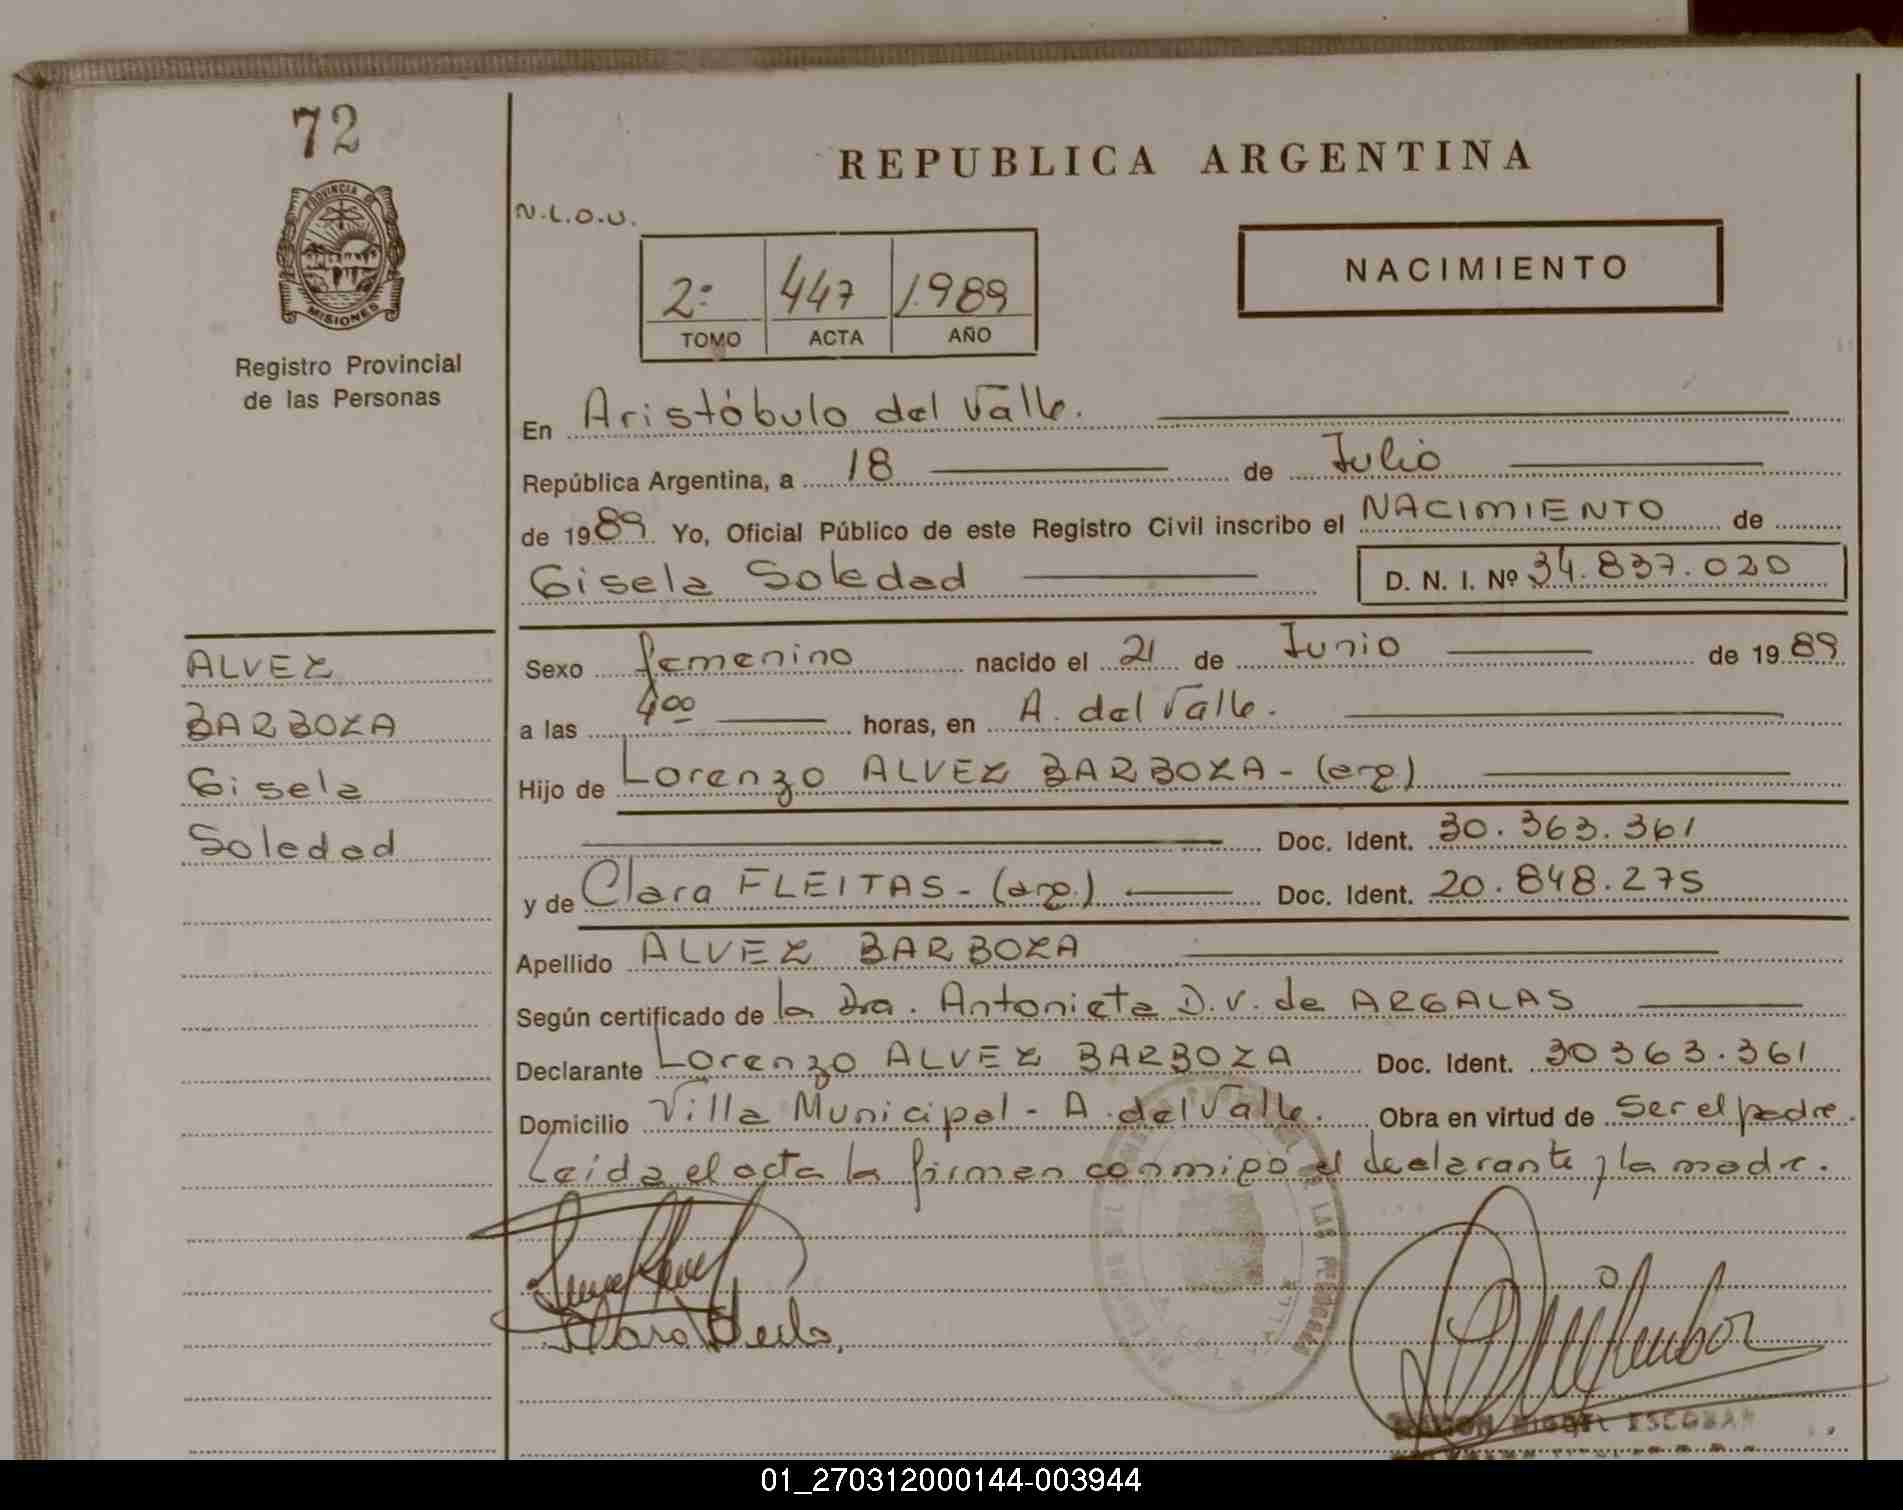 72
PROVINCIA DE
MISIONES
Registro Provincial
de las Personas
REPUBLICA ARGENTINA
N.L.O.U.
2º 447 1.989
TOMO ACTA AÑO
NACIMIENTO
En Aristóbulo del Valle.
República Argentina, a 18 de Julio
de 1989 Yo, Oficial Público de este Registro Civil inscribo el NACIMIENTO de
Gisela Soledad D. N. I. Nº 34.837.020
ALVEZ
BARBOZA
Gisela
Soledad
Sexo femenino nacido el 21 de Junio de 1989
a las 4⁰⁰ horas, en A. del Valle.
Hijo de Lorenzo ALVEZ BARBOZA - (arg)
Doc. Ident. 30.363.361
y de Clara FLEITAS - (arg.) Doc. Ident. 20.848.275
Apellido ALVEZ BARBOZA
Según certificado de la Dra. Antonieta D.V. de ARGALAS
Declarante Lorenzo ALVEZ BARBOZA Doc. Ident. 30363.361
Domicilio Villa Municipal - A. del Valle. Obra en virtud de Ser el padre.
Leída el acta la firman conmigo el declarante y la madre.
RAMON MIGUEL ESCOBAR
01_270312000144-003944